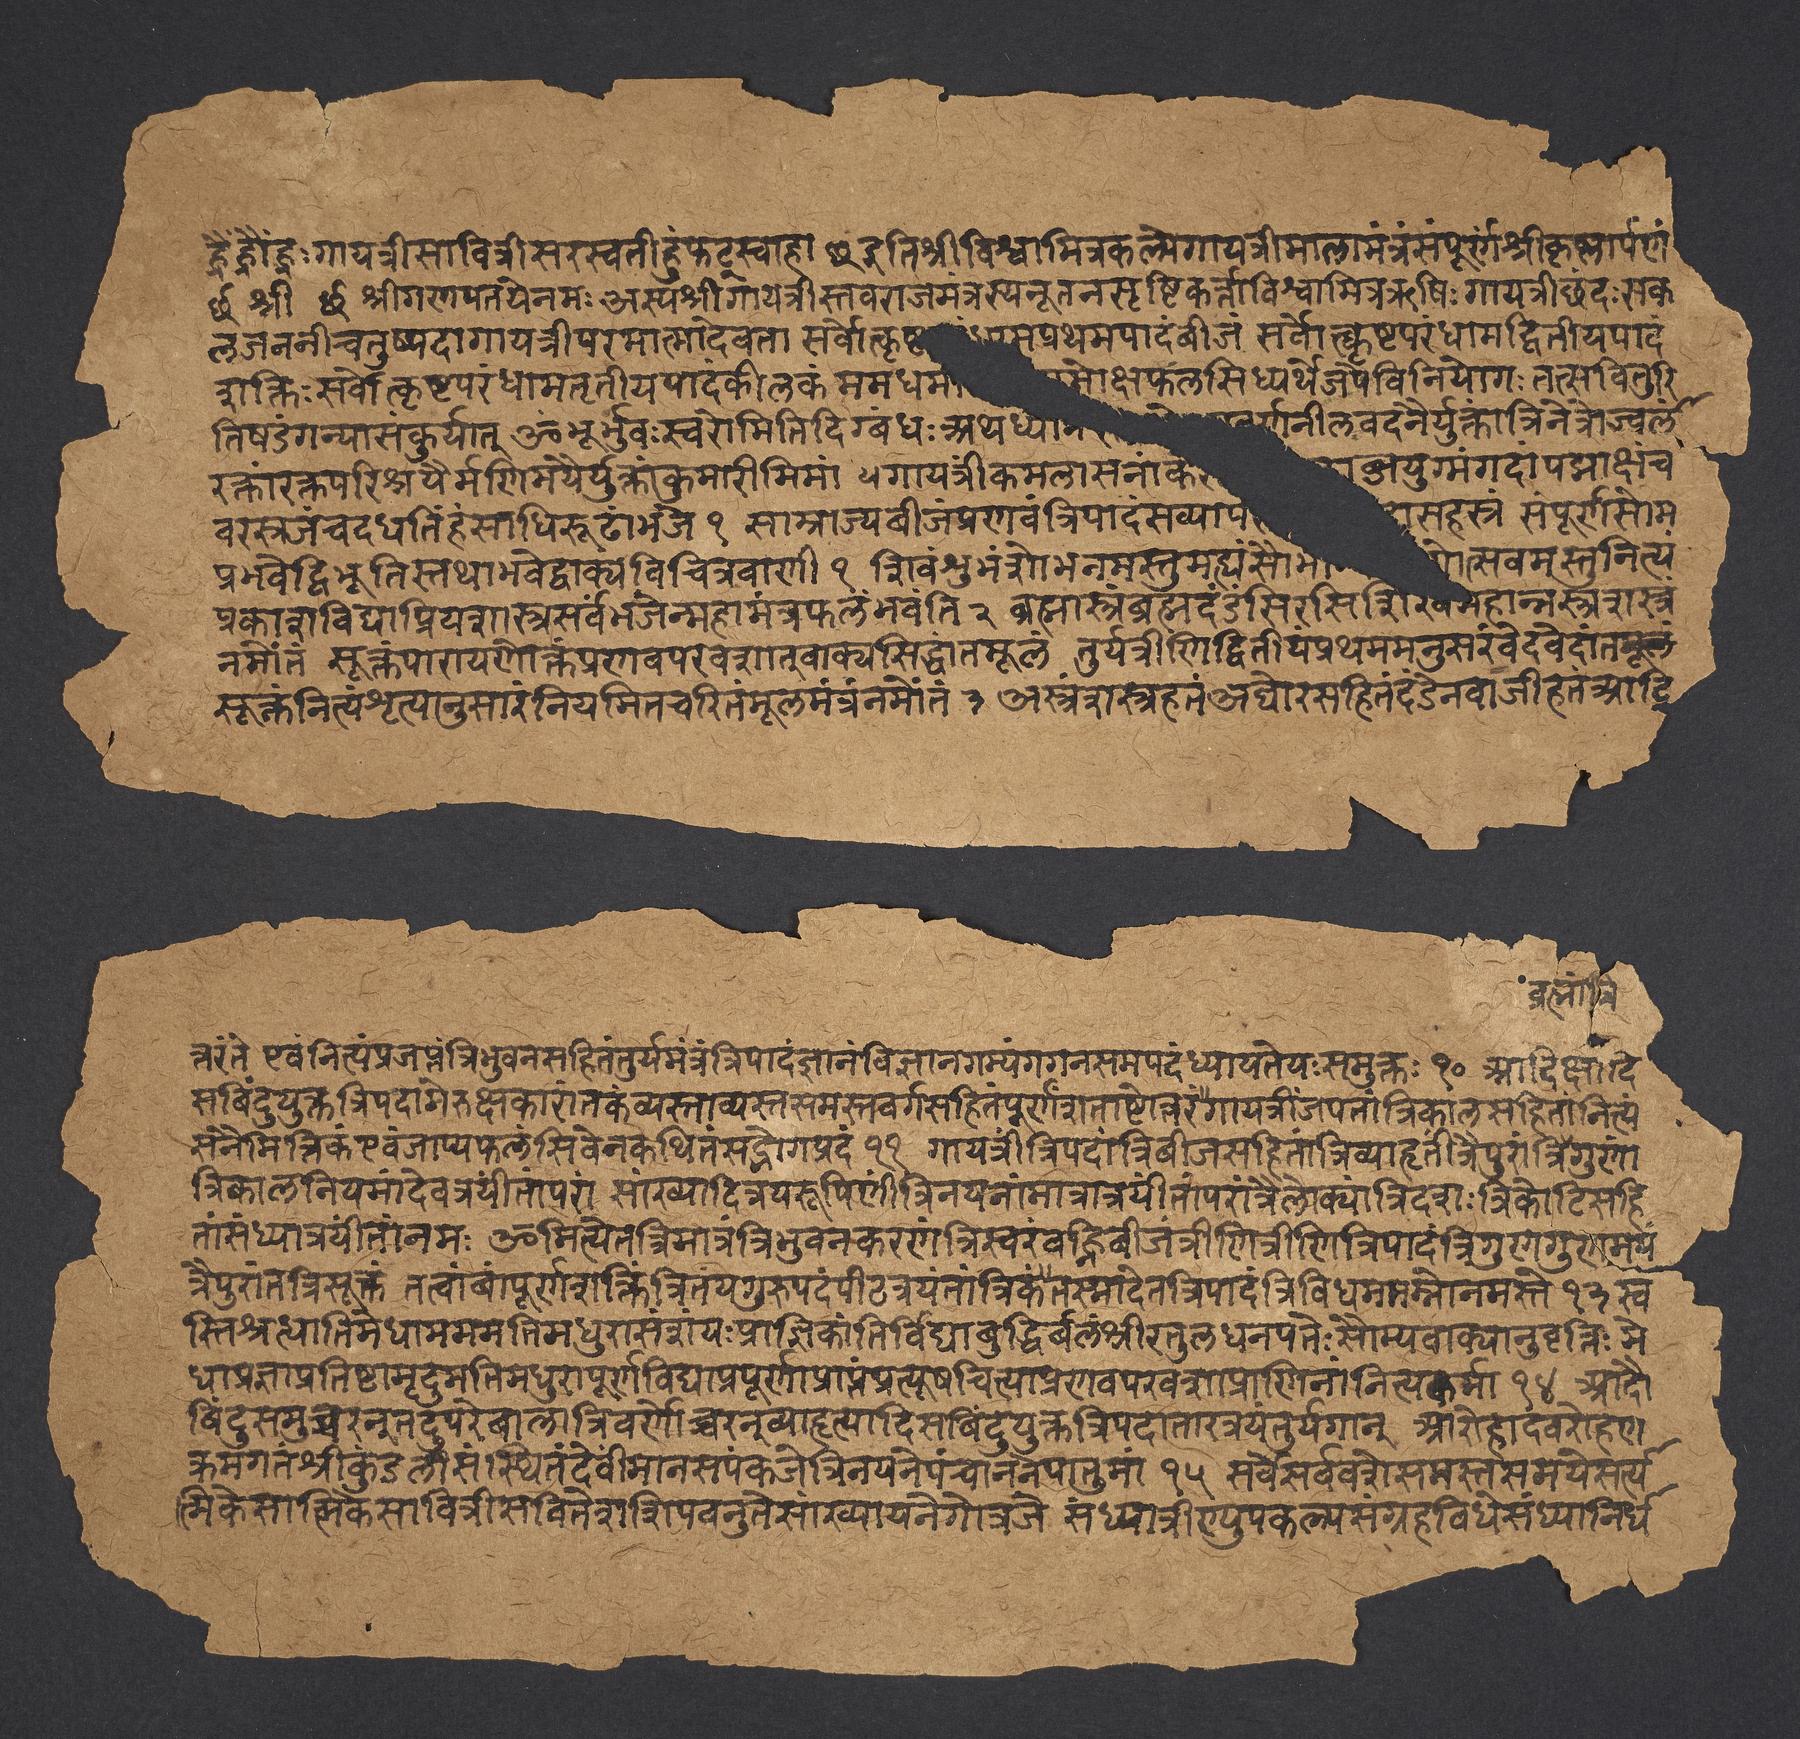 ह्रैंह्रौंह्रः गायत्रीसावित्रीसरस्वतीहुंफट्स्वाहा छ इतिश्रीविश्वामित्रकल्पेगायत्रीमालामंत्रंसंपूर्णं श्रीकृष्णार्पणं
श्री श्रीगणपतयेनमः अस्यश्रीगायत्रीस्तवराजमंत्रस्यनूतनसृष्टिकर्त्ताविश्वामित्रऋषिः गायत्रीछंदः सक
लजननीचतुष्पदागायत्रीपरमात्मादेवता सर्वोत्कृष्ट प्रथमपादंबीजं सर्वोत्कृष्टपरंधामद्वितीयपादं
शक्तिः सर्वोत्कृष्टपरंधामतृतीयपादंकीलकं ममधर्मा मोक्षफलसिध्यर्थेजपेविनियोगः तत्सवितुरि
तिषडंगन्यासंकुर्यात् ॐभूर्भुवःस्वरोमितिदिग्बंधः अथध्यान नीलवदनैर्युक्तांत्रिनेत्रोज्वलां
रक्तांरक्तपरिश्रयैर्मणिमयैर्युक्तांकुमारीमिमां ५ गायत्रींकमलासनांक ब्जयुग्मंगदांपद्माक्षंच
वरस्त्रजंचदधतिंहंसाधिरूढांभजे १ साम्राज्यबीजंप्रणवंत्रिपादंसव्याप सहस्त्रं संपूर्णसोम
प्रभवेद्विभूतिस्तथाभवेद्वाक्यंविचित्रवाणी १ शिवंशुभंशोभनमस्तुमह्यंसौभा त्सवमस्तुनित्यं
प्रकाशविद्याप्रियशास्त्रसर्वंभजेन्महामंत्रफलंभवंति २ ब्रह्मास्त्रंब्रह्मदंडंसिरसिशिखमहान्मस्त्रशस्त्रं
नमोंतं सूक्तंपारायणोक्तंप्रणवपरवशातवाक्यसिद्धांतमूलं तुर्यत्रीणिद्वितीयंप्रथममनुसरंवेदवेदांतमूलं
सूक्तंनित्यंशृत्यानुसारंनियमितचरितंमूलमंत्रंनमोंतं ३ अस्त्रंशस्त्रहतंअघोरसहितंदंडेनवाजीहतंआदि
त्तरंते एवंनित्यंप्रजप्तंत्रिभुवनसहितंतुर्यमंत्रंत्रिपादंज्ञानंविज्ञानगम्यंगगनसमपदंध्यायतेयःसमुक्तः १० आदिक्षांदि
सबिंदुयुक्तत्रिपदांमेरुक्षकारांतकंव्यस्ताव्यस्तसमस्तवर्गसहितंपूर्णंशताष्टोत्तरंगायत्रींजपतांत्रिकालसहितांनित्यं
संनैमित्तिकं एवंजाप्यफलंसिवेनकथितंसद्भोगप्रदं ११ गायत्रींत्रिपदांत्रिबीजसहितांत्रिव्याहृतींत्रैपुरांत्रिगुणां
त्रिकालनियमांदेवत्रयींतांपरां सांख्यादित्रयरूपिणींत्रिनयनांमात्रात्रयींतांपरांत्रैलोक्यांत्रिदशः त्रिकोटिसहि
तांसंध्यात्रयींतांनमः ॐमित्येतत्रिमात्रंत्रिभुवनकरणंत्रिस्वरंवह्निबीजंत्रीणित्रीणित्रिपादंत्रिगुणगुणमयं
त्रैपुरांतत्रिसूक्तं तत्वांबांपूर्णशक्तिंत्रितयगुरुपदंपीठत्रयंतांत्रिकंतस्मादेतत्रिपादंत्रिविधम नमस्ते १३ स्व
स्तिश्रत्यातिमेधाममममतिमधुरासंशयःप्राज्ञिकांतिर्विद्याबुद्धिर्बलंश्रीरतुलधनपतेःसौम्यवाक्यानुवृत्तिः मे
धाप्रज्ञाप्रतिष्टामृदुमतिमधुरापूर्णविद्याप्रपूर्णाप्राप्तंप्रत्यूषचित्याप्रणवपरवशाप्राणिनांनित्यकर्मा १४ आदौ
बिंदुसमुच्चरनुतदुपरेबालात्रिवर्णोच्चरनुव्याहृत्यादिसबिंदुयुक्तत्रिपदातारत्रयंतुर्यगान् आरोहादवरोहण
क्रमगतंश्रीकुंडलीसंस्थितंदेवींमानसपंकजेत्रिनयनेपंचाननेपातुमां १५ सर्वेसर्ववशेसमस्तसमयेसत्यं
मिकेसात्मिकेसावित्रीसवितेशशिपवनुतेसांख्यायनेगोत्रजे संध्यात्रीण्युपकल्पसंग्रहविधेसंध्यानिर्ध